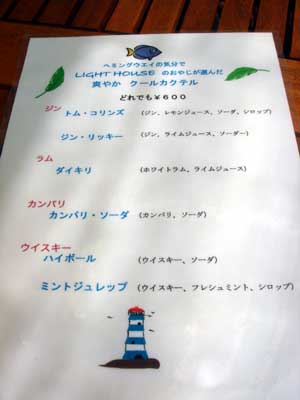 ヘミングウエイの気分で
LIGHT HOUSE のおやじが選んだ
爽やか クールカクテル
どれでも￥６００
ジン
トム・コリンズ (ジン、レモンジュース、ソーダ、シロップ)
ジン・リッキー (ジン、ライムジュース、ソーダー)
ラム
ダイキリ (ホワイトラム、ライムジュース)
カンパリ
カンパリ・ソーダ (カンパリ、ソーダ)
ウイスキー
ハイボール (ウイスキー、ソーダ)
ミントジュレップ (ウイスキー、フレシュミント、シロップ)